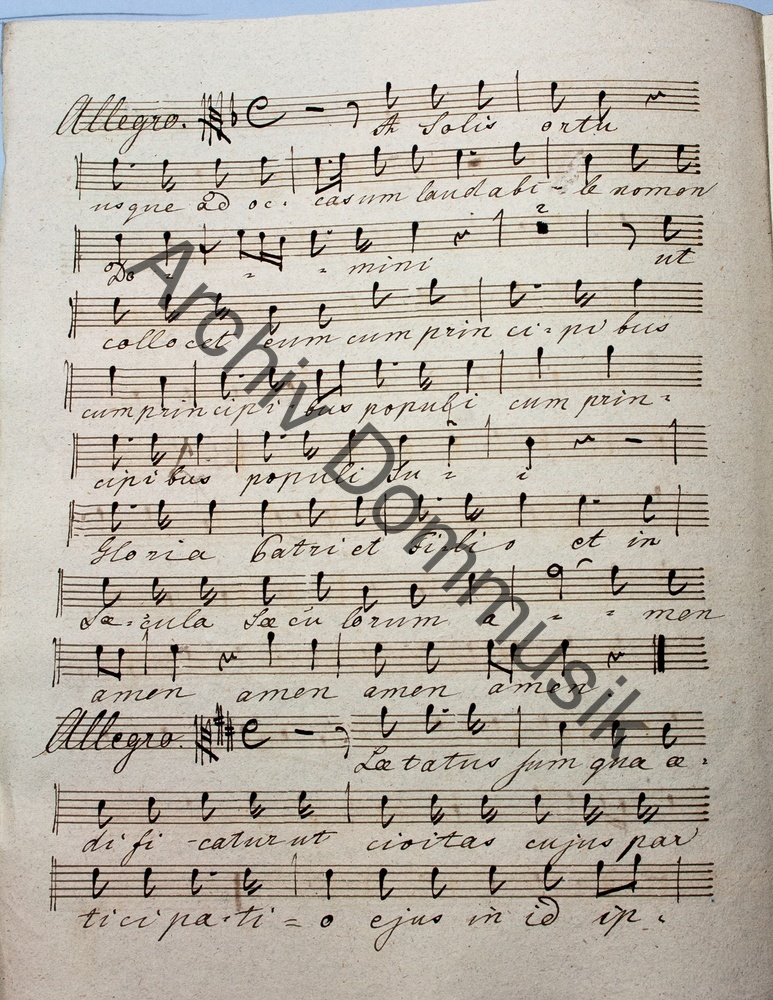 Allegro. A Solis ortu
usque ad oc: casum laudabi - le nomen
Do - - - mini ut
collocet eum cum prin ci = pi bus
cum prin cipi: bus populi cum prin =
cipi bus populi Su - i
Gloria Patri et Filio et in
Sæ =: cula Sæ cu lorum a - - - men
amen amen amen amen.
Allegro. Lætatus sum qua æ =
di fi - catur ut civitas cujus par
ti ci pa - ti = o ejus in id ip -
Archiv Dommusik